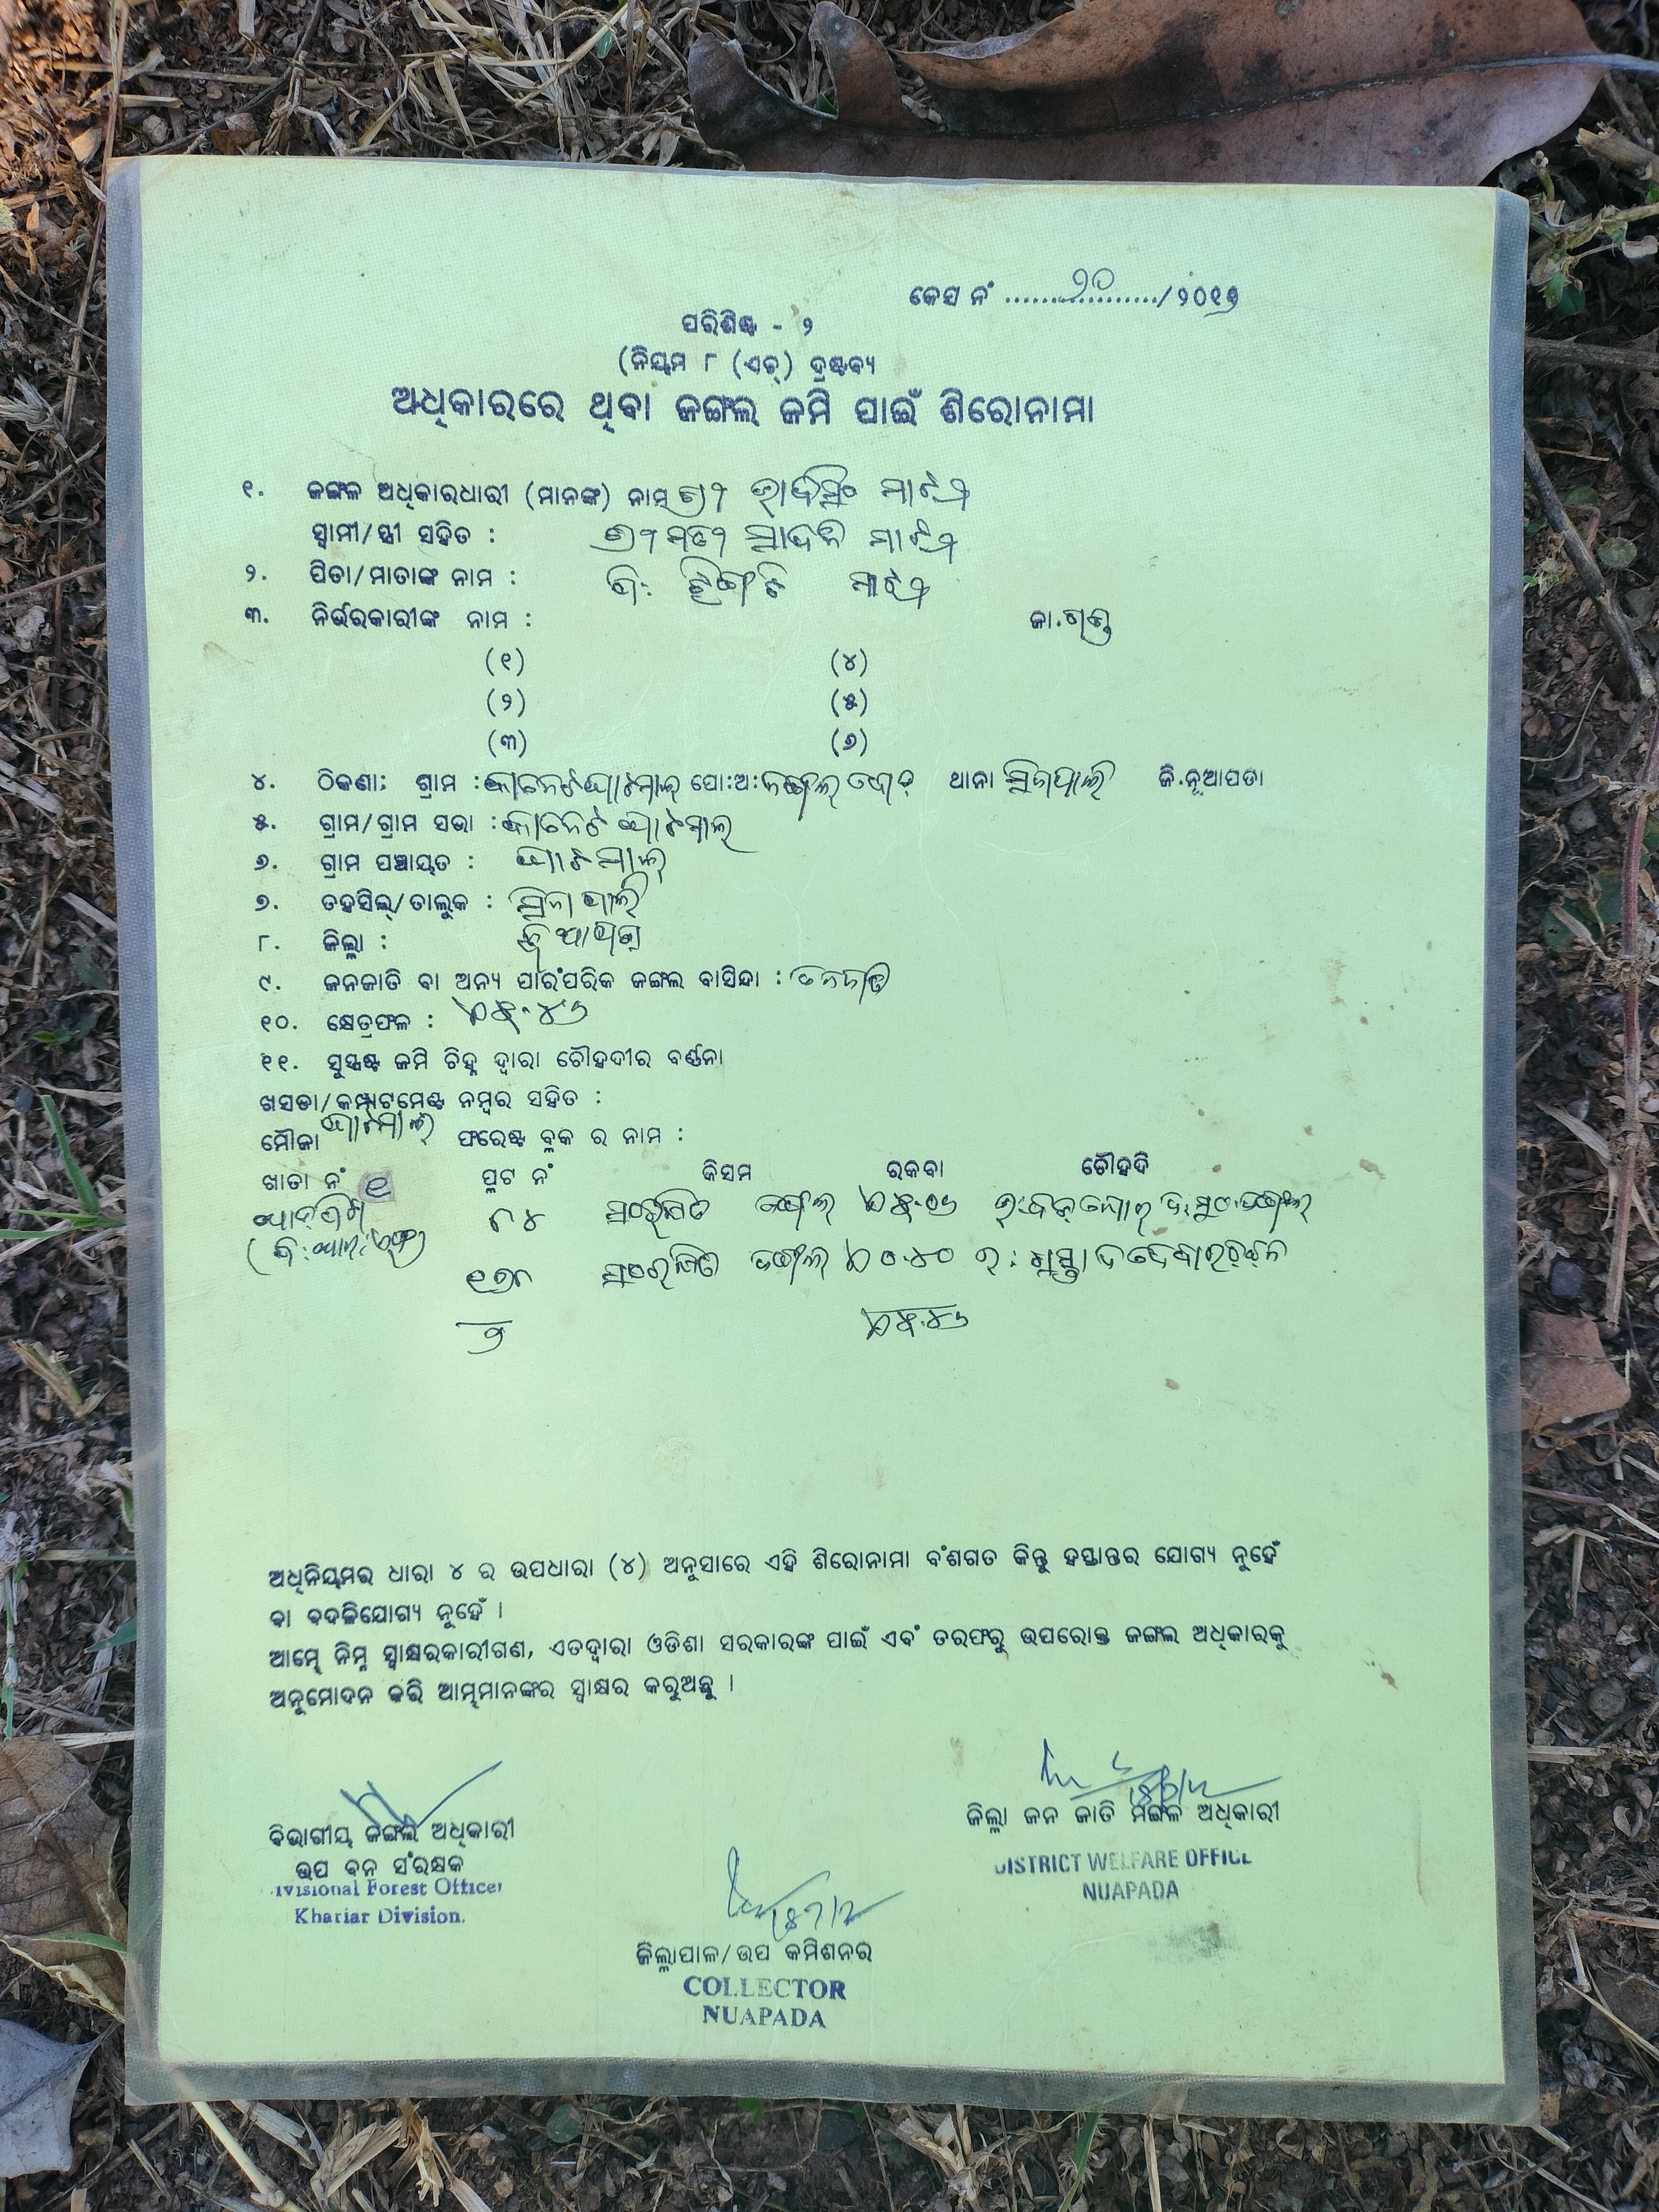 କେସ ନଂ ........୨୦......../୨୦୧୬
ପରିଶିଷ୍ଟ - ୨
(ନିୟମ ୮ (ଏଚ୍) ଦ୍ରଷ୍ଟବ୍ୟ
ଅଧିକାରରେ ଥିବା ଜଙ୍ଗଲ ଜମି ପାଇଁ ଶିରୋନାମା
୧. ଜଙ୍ଗଳ ଅଧିକାରଧାରୀ (ମାନଙ୍କ) ନାମ ଶ୍ରୀ ମାଝୀ
ସ୍ୱାମୀ/ସ୍ତ୍ରୀ ସହିତ : ଶ୍ରୀମତୀ ମାଝୀ
୨. ପିତା/ମାତାଙ୍କ ନାମ : ମାଝୀ
୩. ନିର୍ଭରକାରୀଙ୍କ ନାମ : ଜା.ଗଣ୍ଡ
(୧) (୪)
(୨) (୫)
(୩) (୬)
୪. ଠିକଣା: ଗ୍ରାମ : ପୋ:ଅ: ଥାନା ସିନାପାଲି ଜି.ନୂଆପଡା
୫. ଗ୍ରାମ/ଗ୍ରାମ ସଭା :
୬. ଗ୍ରାମ ପଞ୍ଚାୟତ : ଘାଟମାଲ
୭. ତହସିଲ୍/ତାଲୁକ : ସିନାପାଲି
୮. ଜିଲ୍ଲା : ନୂଆପଡା
୯. ଜନଜାତି ବା ଅନ୍ୟ ପାରଂପରିକ ଜଙ୍ଗଲ ବାସିନ୍ଦା : ଜନଜାତି
୧୦. କ୍ଷେତ୍ରଫଳ : ୫.୪୬
୧୧. ସୁସ୍ପଷ୍ଟ ଜମି ଚିହ୍ନ ଦ୍ୱାରା ଚୌହଦୀର ବର୍ଣ୍ଣନା
ଖସଡା/କମ୍ପାଟମେଣ୍ଟ ନମ୍ବର ସହିତ :
ମୌଜା ଘାଟମାଲ ଫରେଷ୍ଟ ବ୍ଲକ ର ନାମ :
ଖାତା ନଂ ୧ ପ୍ଲଟ ନଂ କିସମ ରକବା ଚୌହଦି
୮୪ ସଂରକ୍ଷିତ ଜଙ୍ଗଲ ୫.୦୬
ସଂରକ୍ଷିତ ଜଙ୍ଗଲ ୦.୪୦
୨ ୫.୪୬
ଅଧିନିୟମର ଧାରା ୪ ର ଉପଧାରା (୪) ଅନୁସାରେ ଏହି ଶିରୋନାମା ବଂଶଗତ କିନ୍ତୁ ହସ୍ତାନ୍ତର ଯୋଗ୍ୟ ନୁହେଁ
ବା ବଦଳିଯୋଗ୍ୟ ନୁହେଁ ।
ଆମ୍ଭେ ନିମ୍ନ ସ୍ୱାକ୍ଷରକାରୀଗଣ, ଏତଦ୍ୱାରା ଓଡିଶା ସରକାରଙ୍କ ପାଇଁ ଏବଂ ତରଫରୁ ଉପରୋକ୍ତ ଜଙ୍ଗଲ ଅଧିକାରକୁ
ଅନୁମୋଦନ କରି ଆମ୍ଭମାନଙ୍କର ସ୍ୱାକ୍ଷର କରୁଅଛୁ ।
ଜିଲ୍ଲା ଜନ ଜାତି ମଙ୍ଗଳ ଅଧିକାରୀ
DISTRICT WELFARE OFFICE
NUAPADA
ବିଭାଗୀୟ ଜଙ୍ଗଲ ଅଧିକାରୀ
ଉପ ବନ ସଂରକ୍ଷକ
ivisional Forest Officer
Khariar Division.
ଜିଲ୍ଲାପାଳ/ଉପ କମିଶନର
COLLECTOR
NUAPADA